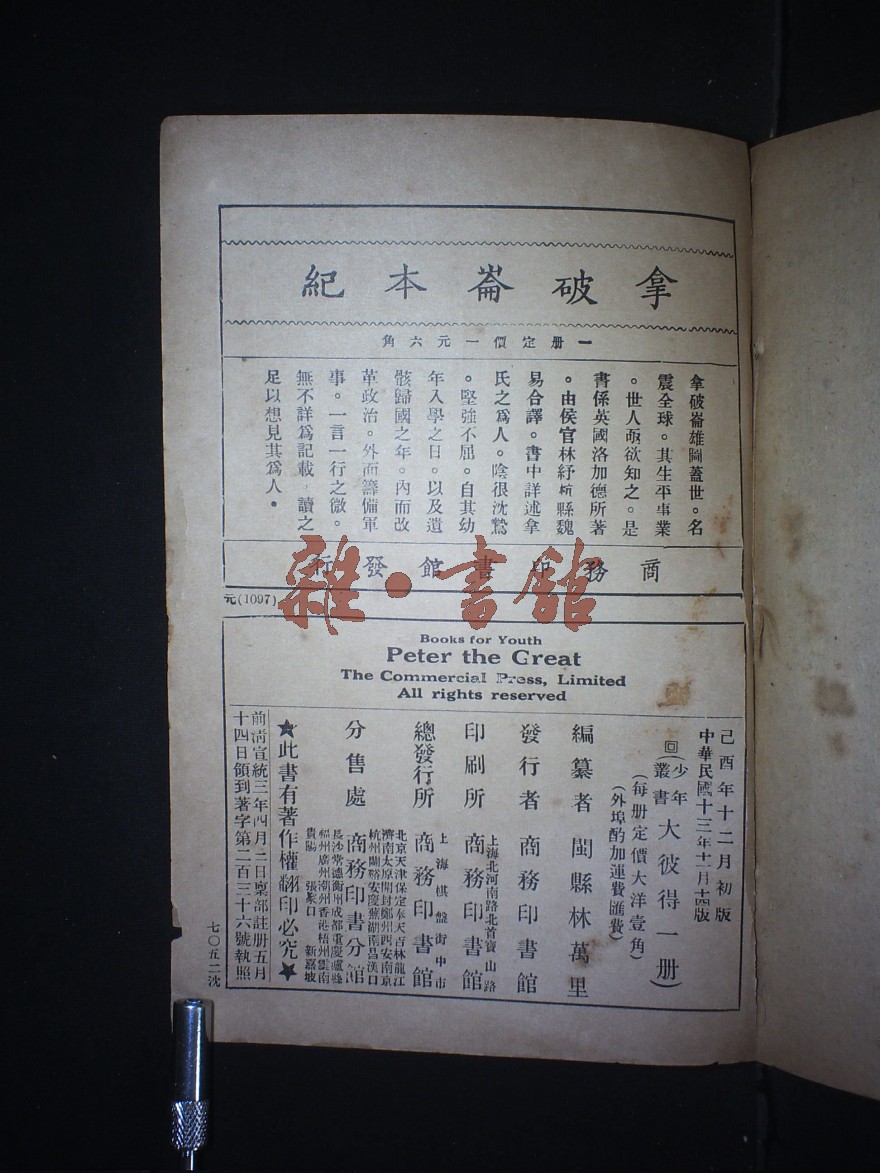 拿破崙本紀
一册定價一元六角
拿破崙雄圖蓋世。名
震全球。其生平事業
。世人亟欲知之。是
書係英國洛加德所著
。由侯官林紓杭縣魏
易合譯。書中詳述拿
氏之爲人。陰很沈鷙
。堅強不屈。自其幼
年入學之日。以及遺
骸歸國之年。內而改
革政治。外而籌備軍
事。一言一行之微。
無不詳爲記載。讀之
足以想見其爲人。
商務印書館發行
元(1097)
雜·書館
Books for Youth
Peter the Great
The Commercial Press, Limited
All rights reserved
己酉年十二月初版
中華民國十三年十一月十四版
回(少年叢書大彼得一册)
(每册定價大洋壹角)
(外埠酌加運費匯費)
編纂者 閩縣林萬里
發行者 商務印書館
上海北河南路北首寶山路
印刷所 商務印書館
上海棋盤街中市
總發行所 商務印書館
北京天津保定奉天吉林龍江
濟南太原開封鄭州西安南京
杭州蘭谿安慶蕪湖南昌漢口
分售處 商務印書分館
長沙常德衡州成都重慶瀘縣
福州廣州潮州香港梧州雲南
貴陽 張家口 新嘉坡
★此書有著作權翻印必究★
前清宣統三年四月二日稟部註册五月
十四日領到著字第二百三十六號執照
七〇五二沈